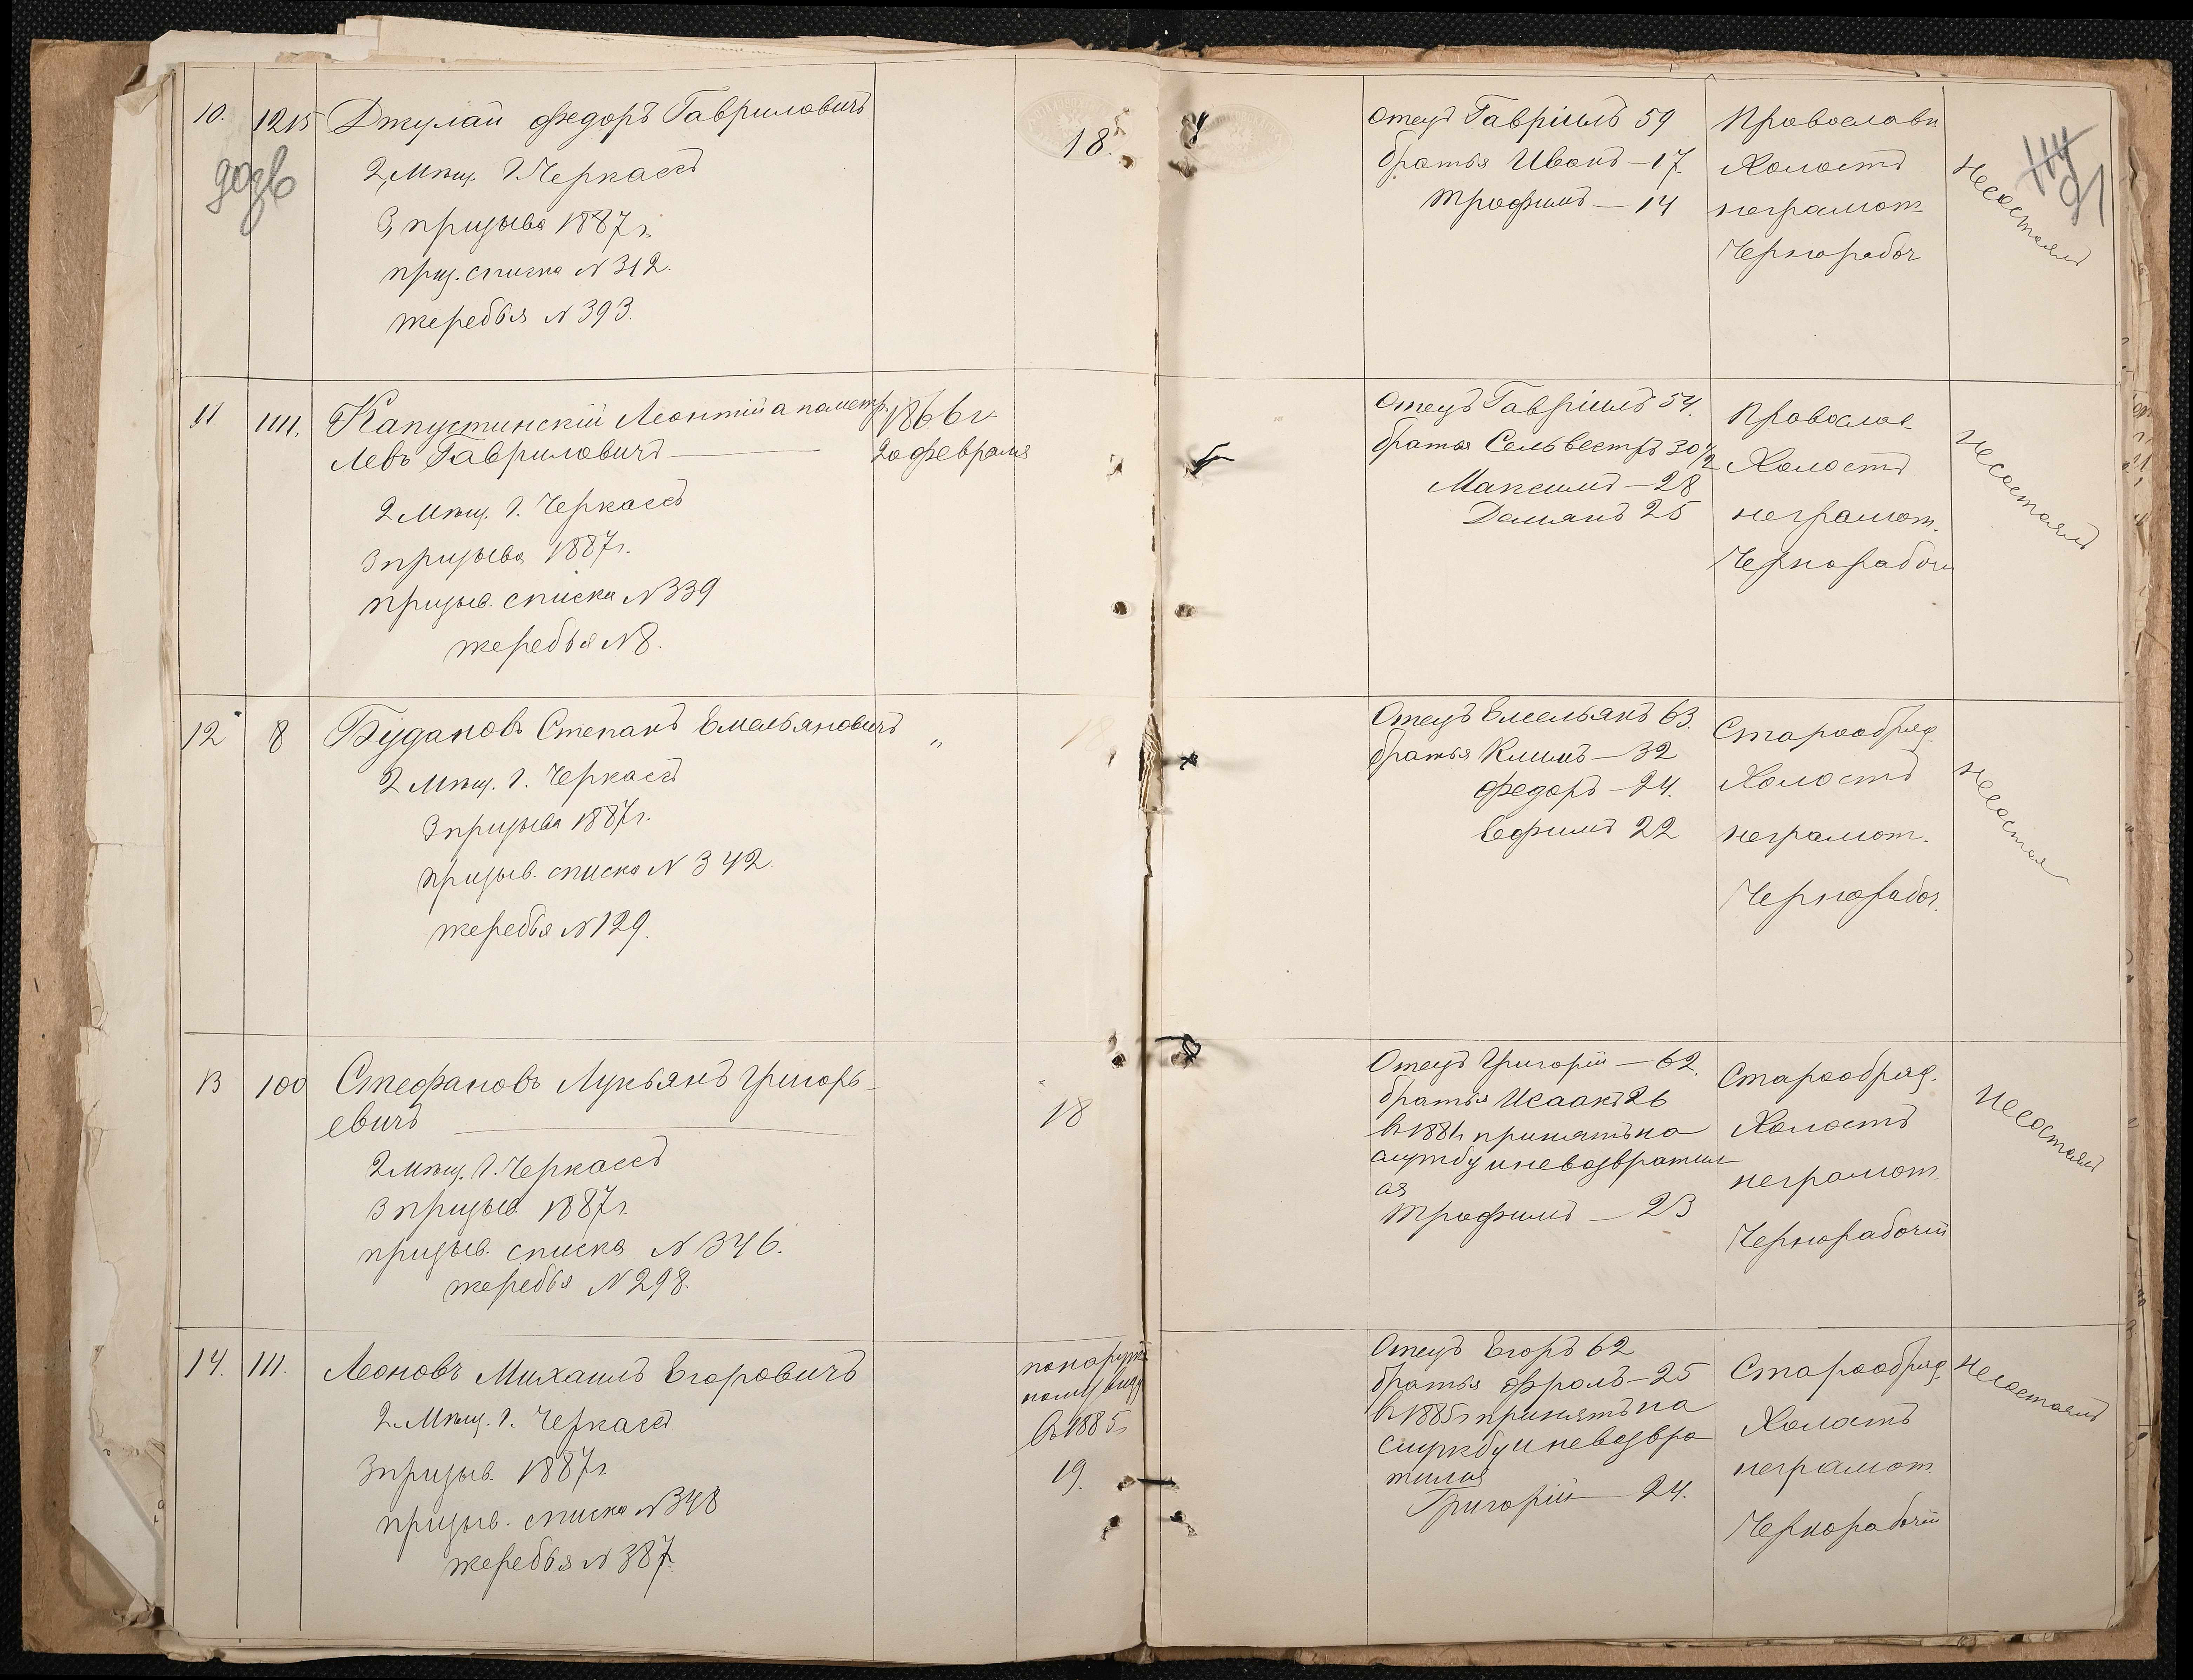 10. 1215 Джулай Федоръ Гавриловичъ
2, Мѣщ. г. Черкассъ
3, призыва 1887 г.
приз. списка N 312.
жеребья N 393.
18.
Отецъ Гавріилъ 59
братья Иванъ — 17.
Трофимъ — 14
Православн
Холостъ
неграмот
Чернорабоч
Несостоялъ
114
91
11 1111. Капустинскій Леонтій а по метр.
Левъ Гавриловичъ
2 Мѣщ. г. Черкассъ
3 призыва 1887 г.
призыв. списка N 339
жеребья N 8.
1866 г.
20 февраля
Отецъ Гавріилъ 54.
братья Сельвестръ 30 1/2
Максимъ — 28
Демянъ 25
Православ.
Холостъ
неграмот.
Чернорабочи
Несостоялъ
12 8 Будановъ Степанъ Емельяновичъ
2 Мѣщ. г. Черкассъ
3 призыва 1887 г.
призыв. списка N 342.
жеребья N 129.
"
Отецъ Емельянъ 63.
братья Климъ — 32
Федоръ — 24.
Ефимъ 22
Старообряд.
Холостъ
неграмот.
Чернорабоч.
Несостоя
13 100 Стефановъ Лукьянъ Григорь-
евичъ
2 Мѣщ. г. Черкассъ
3 призыва 1887 г.
призыв. списка N 346.
жеребья N 298.
18
Отецъ Григорій — 62.
братья Исаакъ 26
въ 1881 г. принятъ на
службу и невозвратил
ся
Трофимъ — 23
Старообряд.
Холостъ
неграмот.
Чернорабочій
Несостоялъ
14. 111. Леоновъ Михаилъ Егоровичъ
2. Мѣщ. г. Черкассъ
3 призыв. 1887 г.
призыв. списка N 348
жеребья N 387.
по наружн
въ 1885 г
19.
Отецъ Егоръ 62
братья Фролъ — 25
въ 1885 г принятъ на
службу и невозвра
тился
Григорій — 24.
Старообряд.
Холостъ
неграмот
Чернорабочій
Несостоялъ